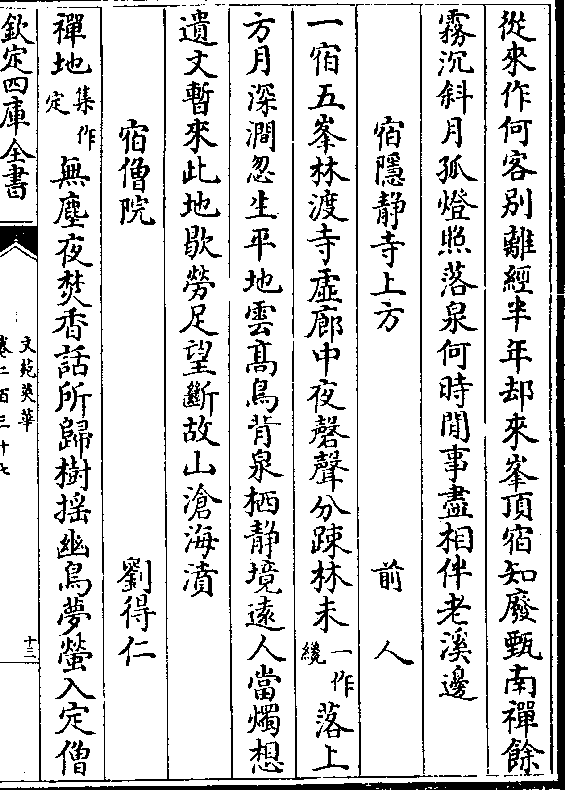 從來作何客別離經半年却來峯頂宿知廢甄南禪餘
霧沉斜月孤燈照落泉何時閒事盡相伴老溪邊
宿隱静寺上方　前人
一宿五峯林渡寺虛廊中夜磬聲分疎林未一作纔落上
方月深澗忽生平地雲髙鳥背泉栖静境逺人當燭想
遺文暫來此地歇勞足望斷故山滄海濆
宿僧院　劉得仁
禪地集作定無塵夜焚香話所歸樹揺幽鳥夢螢入定僧
欽定四庫全書
文苑英華
卷二百三十七
十三